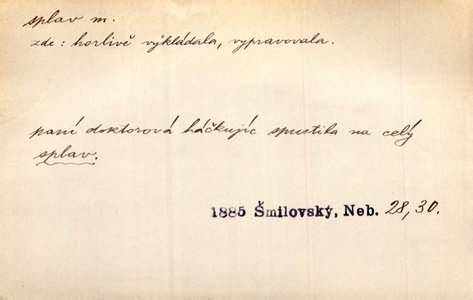 splav m.
zde: horlivě vykládala, vypravovala.
paní doktorová háčkujíc spustila na celý
splav.
1885 Šmilovský, Neb. 28, 30.